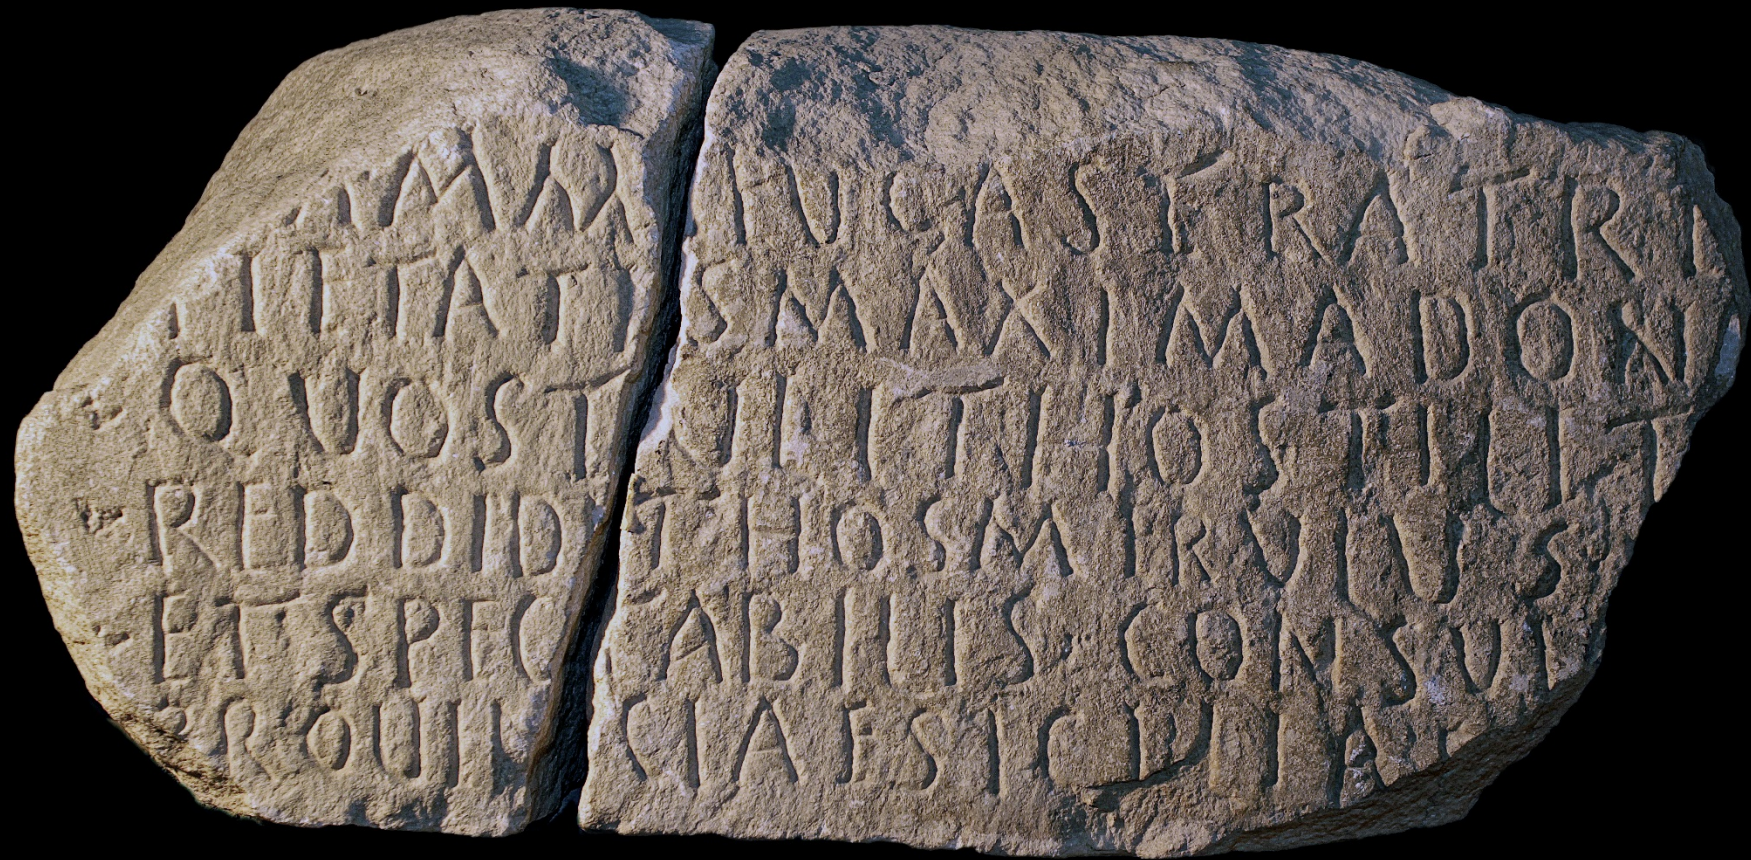 AUCASFRATRI
IETATISMAXIMADON
QVOSTULITHOSTILIT
REDDIDITHOSMIRVIUS
ETSPECTABILISCONSUL
PROUINCIAESICDINA